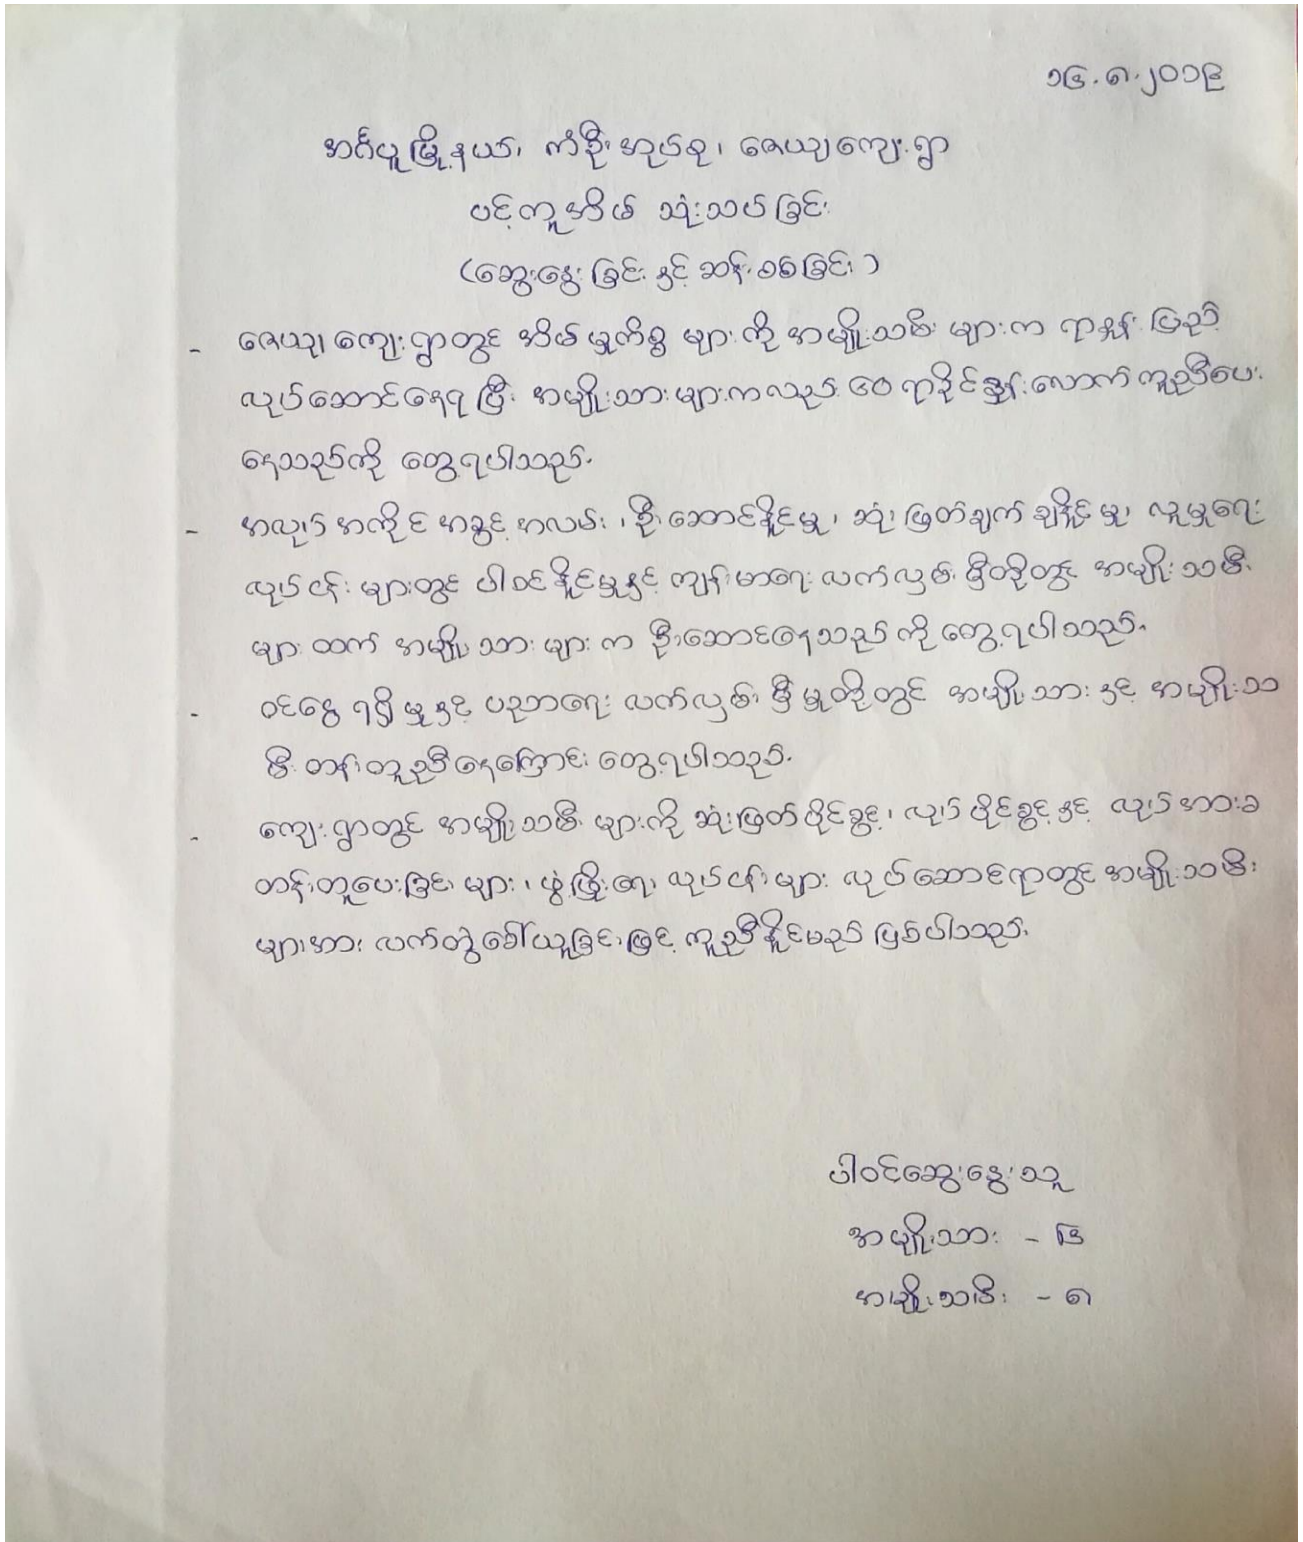 ၁၄.၈.၂၀၁၉
အင်္ဂပူမြို့နယ်၊ ကံဦးအုပ်စု၊ ဇေယျာကျေးရွာ
ပင့်ကူအိမ် သုံးသပ်ခြင်း
(ဆွေးနွေးခြင်း နှင့် ဆန်းစစ်ခြင်း)
- ဇေယျာကျေးရွာတွင် အိမ်မှုကိစ္စ များကို အမျိုးသမီး များက ရာနှုန်း ပြည့်
လုပ်ဆောင်နေရပြီး အမျိုးသားများကလည်း ၆၀ ရာခိုင်နှုန်းလောက် ကူညီပေး
နေသည်ကို တွေ့ရပါသည်.
- အလုပ် အကိုင် အခွင့် အလမ်း ၊ ဦးဆောင်နိုင်မှု ၊ ဆုံးဖြတ်ချက် ချနိုင်မှု၊ လူမှုရေး
လုပ်ငန်း များတွင် ပါဝင်နိုင်မှုနှင့် ကျန်းမာရေး လက်လှမ်းမှီတို့တွင် အမျိုးသမီး
များ ထက် အမျိုးသား များ က ဦးဆောင်နေသည် ကို တွေ့ရပါသည်.
- ဝင်ငွေ ရရှိမှုနှင့် ပညာရေး လက်လှမ်းမှီမှုတို့တွင် အမျိုးသား နှင့် အမျိုးသ
မီး တန်းတူညီနေကြောင်း တွေ့ရပါသည်.
- ကျေးရွာတွင် အမျိုးသမီး များကို ဆုံးဖြတ်ပိုင်ခွင့်၊ လုပ်ပိုင်ခွင့်နှင့် လုပ်အားခ
တန်းတူပေးခြင်း များ ၊ ဖွံ့ဖြိုးရေး လုပ်ငန်းများ လုပ်ဆောင်ရာတွင် အမျိုးသမီး
များအား လက်တွဲခေါ်ယူခြင်းဖြင့် ကူညီနိုင်မည် ဖြစ်ပါသည်.
ပါဝင်ဆွေးနွေးသူ
အမျိုးသား - ၆
အမျိုးသမီး - ၈